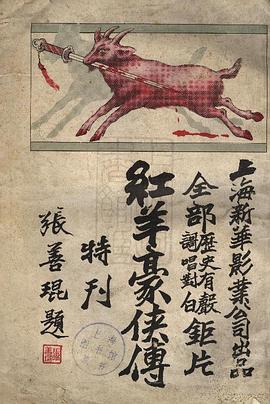 上海新華影業公司出品
全部
歷史有聲
謌唱對白
鉅片
紅羊豪俠傳
特刊
張善琨題